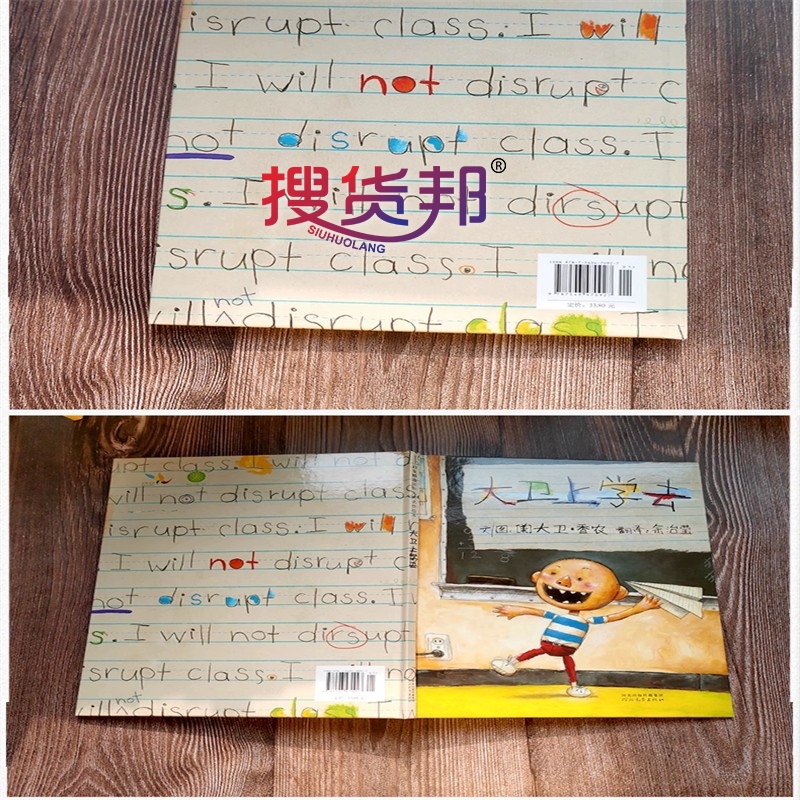 isrupt class. I will
. I will not disrupt c
not disrupt class. I
s. I will not dirsupt
搜货邦®
SIUHUOLANG
isrupt class. I will no
not
will disrupt class. I w
upt class. I will not di
will not disrupt class
isrupt class. I will
I will not disrupt
not disrupt class. I
s. I will not dirsupt
srupt class. I
not
will disrupt class. I will
大卫上学去
文/图:[美]大卫·香农 翻译:余治莹
大卫上学去